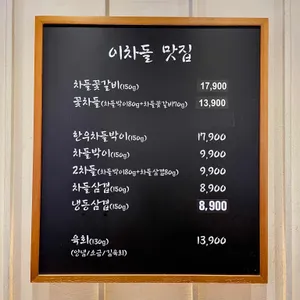 이차돌 맛집
차돌꽃갈비(150g) 17,900
꽃차돌(차돌박이80g+차돌꽃갈비70g) 13,900
한우차돌박이(150g) 17,900
차돌박이(150g) 9,900
2차돌(차돌박이80g+차돌삼겹80g) 9,900
차돌삼겹(150g) 8,900
냉동삼겹(150g) 8,900
육회(130g) 13,900
(양념/소금/김육회)